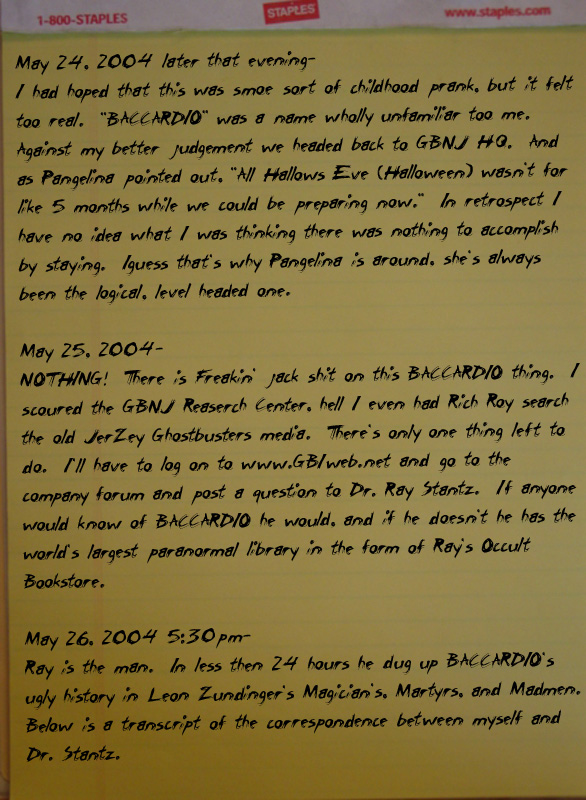 1-800-STAPLES STAPLES www.staples.com
May 24, 2004 later that evening-
I had hoped that this was smoe sort of childhood prank, but it felt
too real. "BACCARDIO" was a name wholly unfamiliar too me.
Against my better judgement we headed back to GBNJ HQ. And
as Pangelina pointed out, "All Hallows Eve (Halloween) wasn't for
like 5 months while we could be preparing now." In retrospect I
have no idea what I was thinking there was nothing to accomplish
by staying. Iguess that's why Pangelina is around, she's always
been the logical, level headed one.
May 25, 2004-
NOTHING! There is Freakin' jack shit on this BACCARDIO thing. I
scoured the GBNJ Reaserch Center, hell I even had Rich Roy search
the old JerZey Ghostbusters media. There's only one thing left to
do. I'll have to log on to www.GBIweb.net and go to the
company forum and post a question to Dr. Ray Stantz. If anyone
would know of BACCARDIO he would, and if he doesn't he has the
world's largest paranormal library in the form of Ray's Occult
Bookstore.
May 26, 2004 5:30pm-
Ray is the man. In less then 24 hours he dug up BACCARDIO's
ugly history in Leon Zundinger's Magician's, Martyrs, and Madmen.
Below is a transcript of the correspondence between myself and
Dr. Stantz.